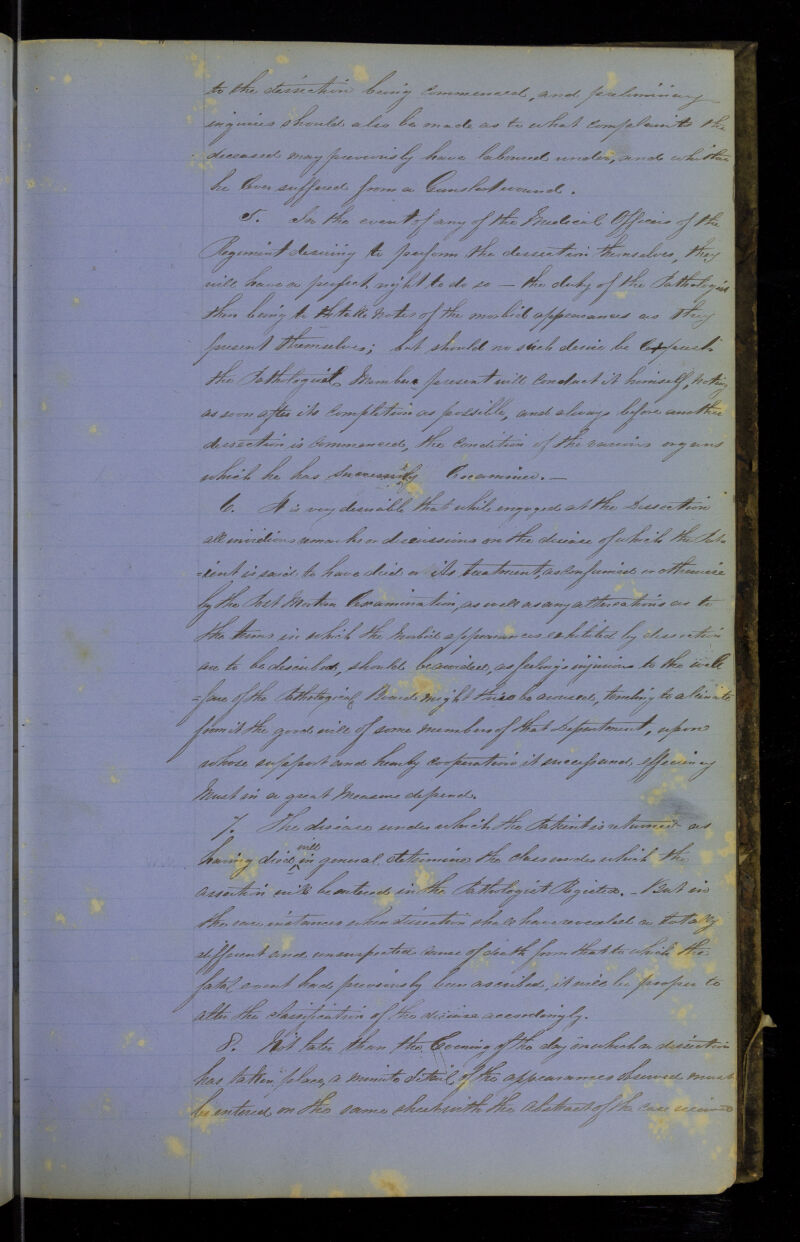 to the dissection being commenced, and preliminary
inquiries should also be made as to what complaints the
deceased may previously have laboured under, and whether
he ever suffered from a Gunshot wound.
5. In the event of any of the Medical Officers of the
Regiment desiring to perform the dissection themselves, they
will have a perfect right to do so — the duty of the Pathologist
then being to take notes of the morbid appearances as they
present themselves; but should no such desire be
the Pathologist Member present will conduct it himself, noting
as soon after its completion as possible, and always before another
dissection is commenced, the condition of the various organs
which he has successively Examined. —
6. It is very desirable that while engaged at the Dissection
all invidious remarks or discussions on the disease of which the Pat-
=ient is said to have died or its treatment, as confirmed or otherwise
by the Post Mortem Examination, as well as any altercations as to
the terms in which the Morbid appearances exhibited by dissection
are to be described, should be avoided, as feelings injurious to the well
=fare of the Pathological Board might thus be aroused, tending to alienate
from it the good will of some members of that Department, upon
whose support and hearty cooperation its success and efficiency
must in a great measure depend.
7. The disease under which the Patient is returned as
having died will in general determine the class under which the
will be entered in the Pathologist Register. — But in
the rare instances when dissection shall have revealed a totally
different and unsuspected cause of death from that to which the
fatal event had previously been ascribed, it will be proper to
alter the classification of the disease accordingly.
8. Not later than the Evening of the day in which a dissection
has taken place, a minute detail of the appearances observed must
be entered on the same sheet with the abstract of the case received